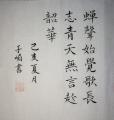 蟬聲始覺歌長
志青天無言趁
韶華
己亥夏月